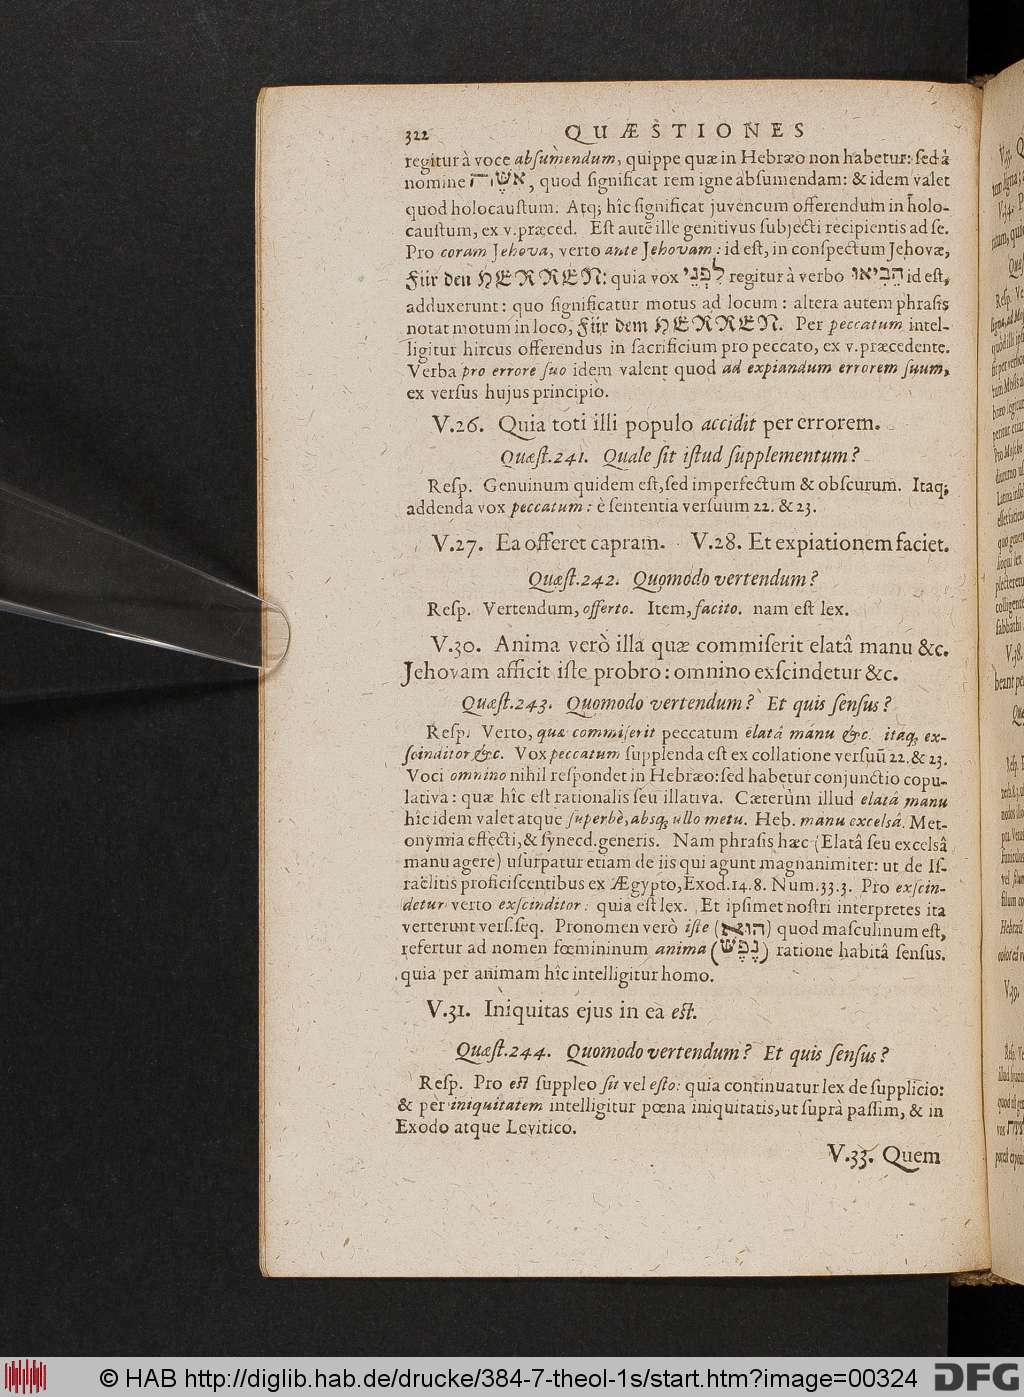 322 QUÆSTIONES
regitur à voce absumendum, quippe quæ in Hebræo non habetur: sed à
nomine אשה, quod significat rem igne absumendam: & idem valet
quod holocaustum. Atq; hîc significat juvencum offerendum in holo-
caustum, ex v. præced. Est autē ille genitivus subjecti recipientis ad se.
Pro coram Jehova, verto ante Jehovam: id est, in conspectum Jehovæ,
Für den HERREN: quia vox לִפְנֵי regitur à verbo הֵבִיאוּ id est,
adduxerunt: quo significatur motus ad locum: altera autem phrasis
notat motum in loco, Für dem HERREN. Per peccatum intel-
ligitur hircus offerendus in sacrificium pro peccato, ex v. præcedente.
Verba pro errore suo idem valent quod ad expiandum errorem suum,
ex versus hujus principio.
V.26. Quia toti illi populo accidit per errorem.
Quæst.241. Quale sit istud supplementum?
Resp. Genuinum quidem est, sed imperfectum & obscurum. Itaq;
addenda vox peccatum: è sententia versuum 22. & 23.
V.27. Ea offeret capram. V.28. Et expiationem faciet.
Quæst.242. Quomodo vertendum?
Resp. Vertendum, offerto. Item, facito. nam est lex.
V.30. Anima verò illa quæ commiserit elatâ manu &c.
Jehovam afficit iste probro: omnino exscindetur &c.
Quæst.243. Quomodo vertendum? Et quis sensus?
Resp. Verto, quæ commiserit peccatum elatâ manu &c. itaq; ex-
scinditor &c. Vox peccatum supplenda est ex collatione versuū 22. & 23.
Voci omnino nihil respondet in Hebræo: sed habetur conjunctio copu-
lativa: quæ hîc est rationalis seu illativa. Cæterùm illud elatâ manu
hîc idem valet atque superbè, absq; ullo metu. Heb. manu excelsâ. Met-
onymia effecti, & synecd. generis. Nam phrasis hæc (Elatâ seu excelsâ
manu agere) usurpatur etiam de iis qui agunt magnanimiter: ut de Is-
raëlitis proficiscentibus ex Ægypto, Exod.14.8. Num.33.3. Pro exscin-
detur verto exscinditor: quia est lex. Et ipsimet nostri interpretes ita
verterunt vers. seq. Pronomen verò iste (הוּא) quod masculinum est,
refertur ad nomen fœmininum anima (נֶפֶשׁ) ratione habitâ sensus.
quia per animam hîc intelligitur homo.
V.31. Iniquitas ejus in ea est.
Quæst.244. Quomodo vertendum? Et quis sensus?
Resp. Pro est suppleo sit vel esto: quia continuatur lex de supplicio:
& per iniquitatem intelligitur pœna iniquitatis, ut suprà passim, & in
Exodo atque Levitico.
V.33. Quem
© HAB http://diglib.hab.de/drucke/384-7-theol-1s/start.htm?image=00324
DFG